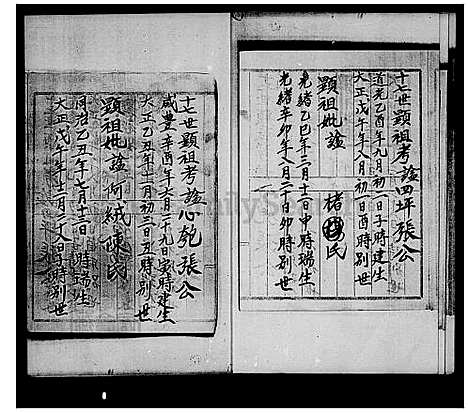 十七世顕祖考諡四坪張公
道光乙酉年九月初一日子時建生
大正戊午年八月初一日酉時別世
顕祖妣諡 楮 氏
光緒乙巳年三月十一日申時瑞生
光緒辛卯年八月二十日卯時別世
十七世顕祖考諡心匏張公
咸豊辛酉年六月二十九日寅時建生
大正乙丑年十一月初三日丑時別世
顕祖妣諡阿絨陳氏
同治乙丑年七月十一日 時瑞生
大正戊 年十一月二十八日子時別世